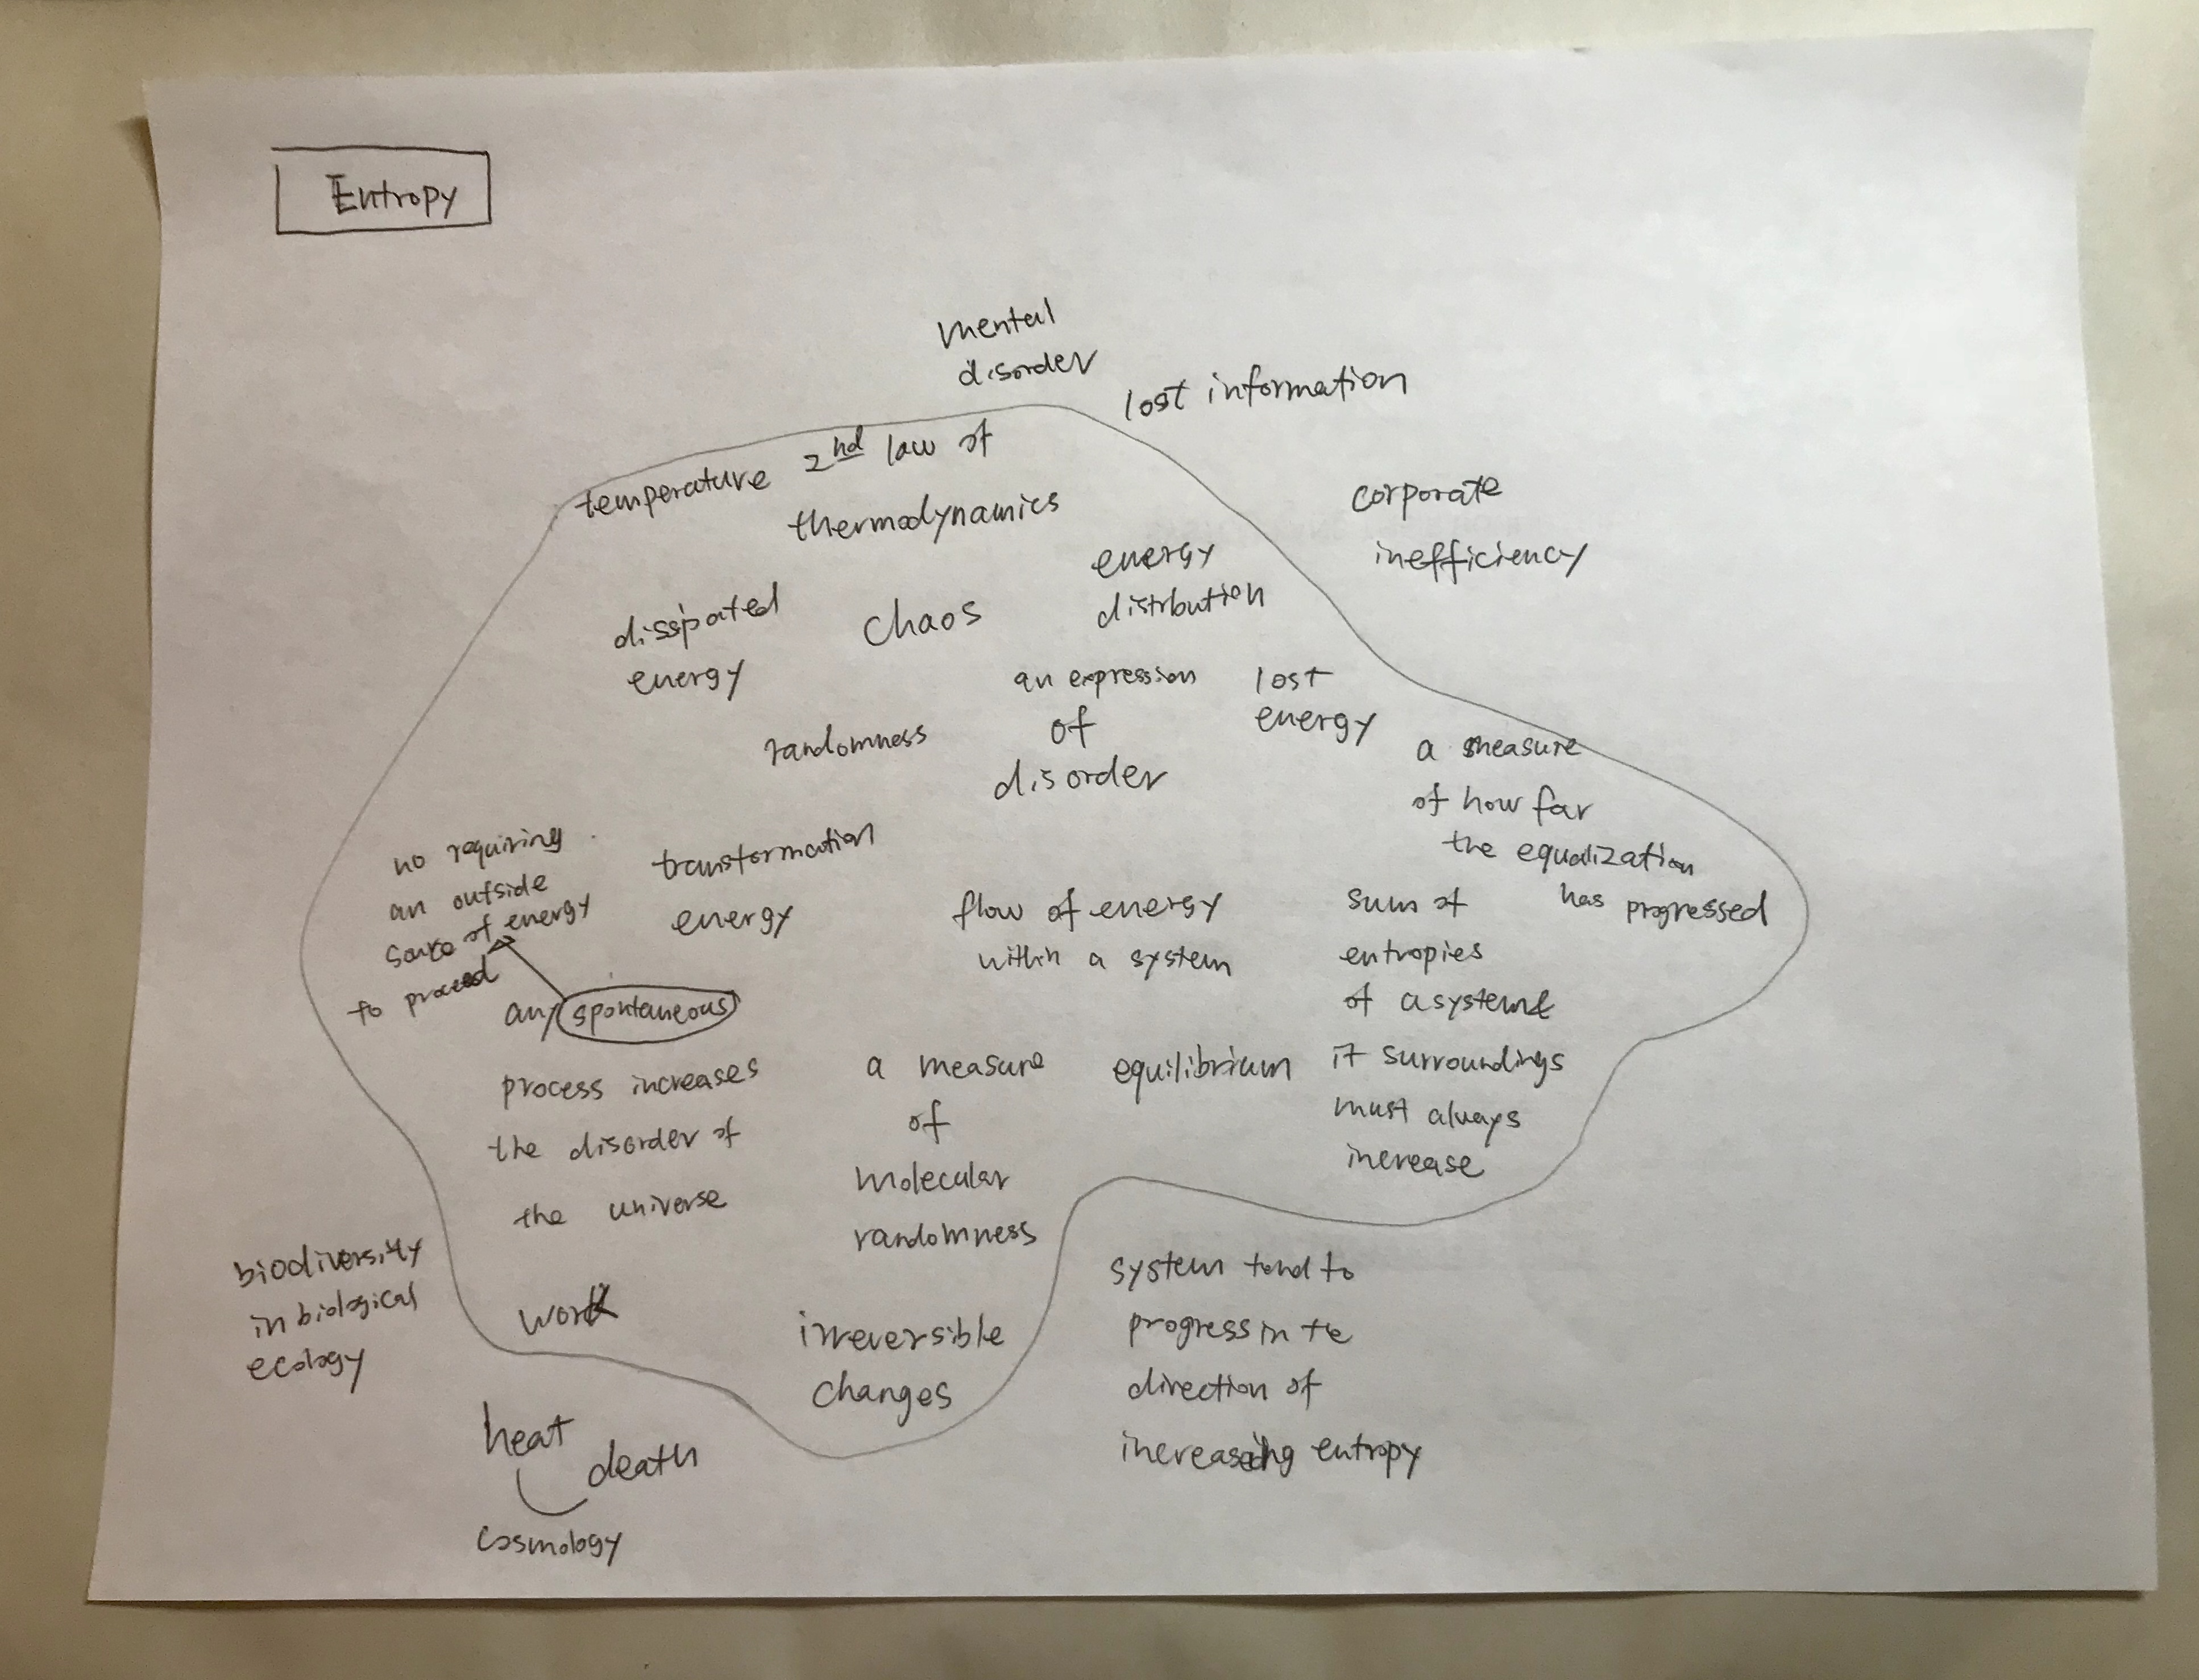 Entropy
mental
disorder
lost information
temperature 2nd law of
thermodynamics
corporate
inefficiency
energy
distrbution
dissipated
energy
chaos
an expression
of
disorder
lost
energy
randomness
a measure
of how far
the equalization
has progressed
no requiring
an outside
source of energy
to proceed
transformation
energy
flow of energy
within a system
sum of
entropies
of a system &
it surroundings
must always
increase
any spontaneous
process increases
the disorder of
the universe
a measure
of
molecular
randomness
equilibrium
biodiversity
in biological
ecology
work
irreversible
changes
system tend to
progress in the
direction of
increasing entropy
heat
death
cosmology